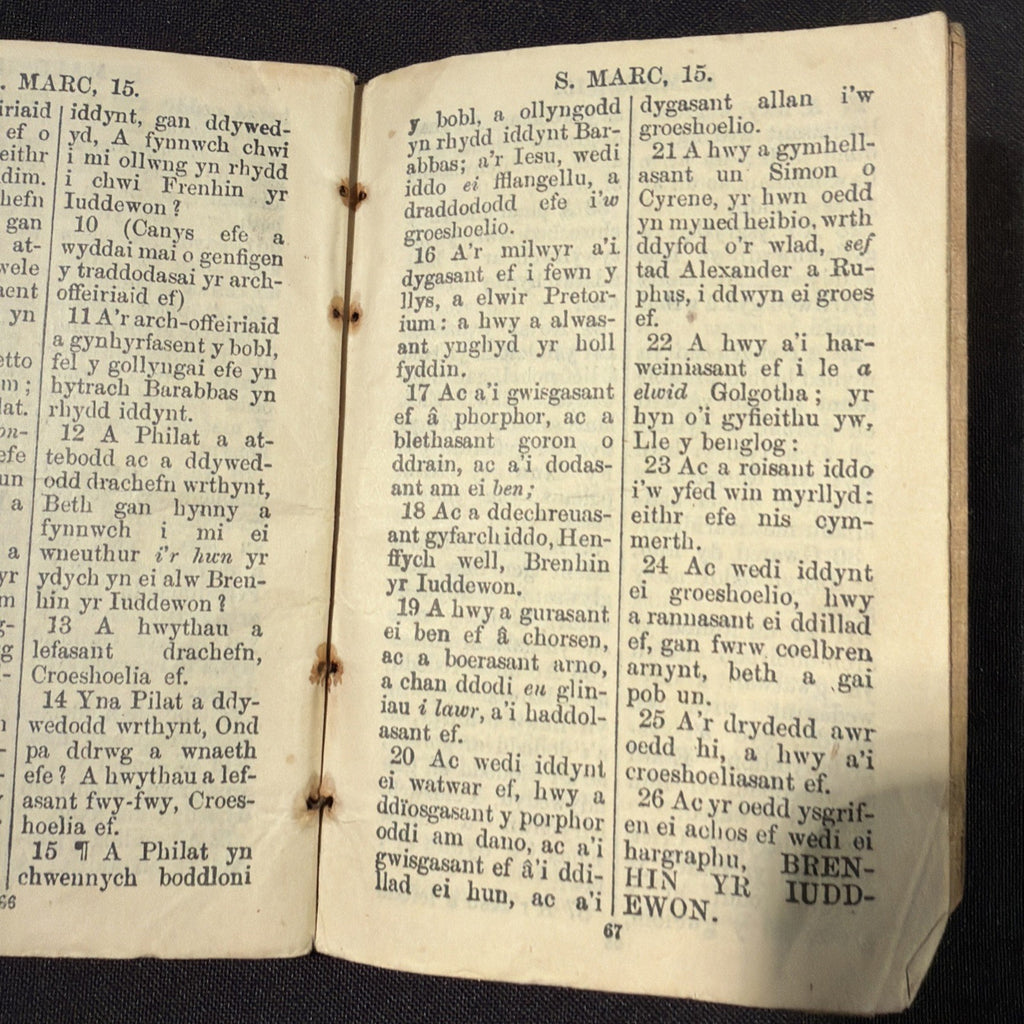 . MARC, 15.
iriaid
ef o
eithr
dim.
hefn
gan
at-
wele
aent
yn
etto
m;
lat.
on-
efe
un
a
a
yr
m
g-
g
iddynt, gan ddywed-
yd, A fynnwch chwi
i mi ollwng yn rhydd
i chwi Frenhin yr
Iuddewon?
10 (Canys efe a
wyddai mai o genfigen
y traddodasai yr arch-
offeiriaid ef)
11 A'r arch-offeiriaid
a gynhyrfasent y bobl,
fel y gollyngai efe yn
hytrach Barabbas yn
rhydd iddynt.
12 A Philat a at-
tebodd ac a ddywed-
odd drachefn wrthynt,
Beth gan hynny a
fynnwch i mi ei
wneuthur i'r hwn yr
ydych yn ei alw Bren-
hin yr Iuddewon?
13 A hwythau a
lefasant drachefn,
Croeshoelia ef.
14 Yna Pilat a ddy-
wedodd wrthynt, Ond
pa ddrwg a wnaeth
efe? A hwythau a lef-
asant fwy-fwy, Croes-
hoelia ef.
15 ¶ A Philat yn
chwennych boddloni
66
S. MARC, 15.
y bobl, a ollyngodd
yn rhydd iddynt Bar-
abbas; a'r Iesu, wedi
iddo ei fflangellu, a
draddododd efe i'w
groeshoelio.
16 A'r milwyr a'i
dygasant ef i fewn y
llys, a elwir Pretor-
ium: a hwy a alwas-
ant ynghyd yr holl
fyddin.
17 Ac a'i gwisgasant
ef â phorphor, ac a
blethasant goron o
ddrain, ac a'i dodas-
ant am ei ben;
18 Ac a ddechreuas-
ant gyfarch iddo, Hen-
ffych well, Brenhin
yr Iuddewon.
19 A hwy a gurasant
ei ben ef â chorsen,
ac a boerasant arno,
a chan ddodi eu glin-
iau i lawr, a'i haddol-
asant ef.
20 Ac wedi iddynt
ei watwar ef, hwy a
ddïosgasant y porphor
oddi am dano, ac a'i
gwisgasant ef â'i ddi-
llad ei hun, ac a'i
dygasant allan i'w
groeshoelio.
21 A hwy a gymhell-
asant un Simon o
Cyrene, yr hwn oedd
yn myned heibio, wrth
ddyfod o'r wlad, sef
tad Alexander a Ru-
phus, i ddwyn ei groes
ef.
22 A hwy a'i har-
weiniasant ef i le a
elwid Golgotha; yr
hyn o'i gyfieithu yw,
Lle y benglog:
23 Ac a roisant iddo
i'w yfed win myrllyd:
eithr efe nis cym-
merth.
24 Ac wedi iddynt
ei groeshoelio, hwy
a rannasant ei ddillad
ef, gan fwrw coelbren
arnynt, beth a gai
pob un.
25 A'r drydedd awr
oedd hi, a hwy a'i
croeshoeliasant ef.
26 Ac yr oedd ysgrif-
en ei achos ef wedi ei
hargraphu, BREN-
HIN YR IUDD-
EWON.
67